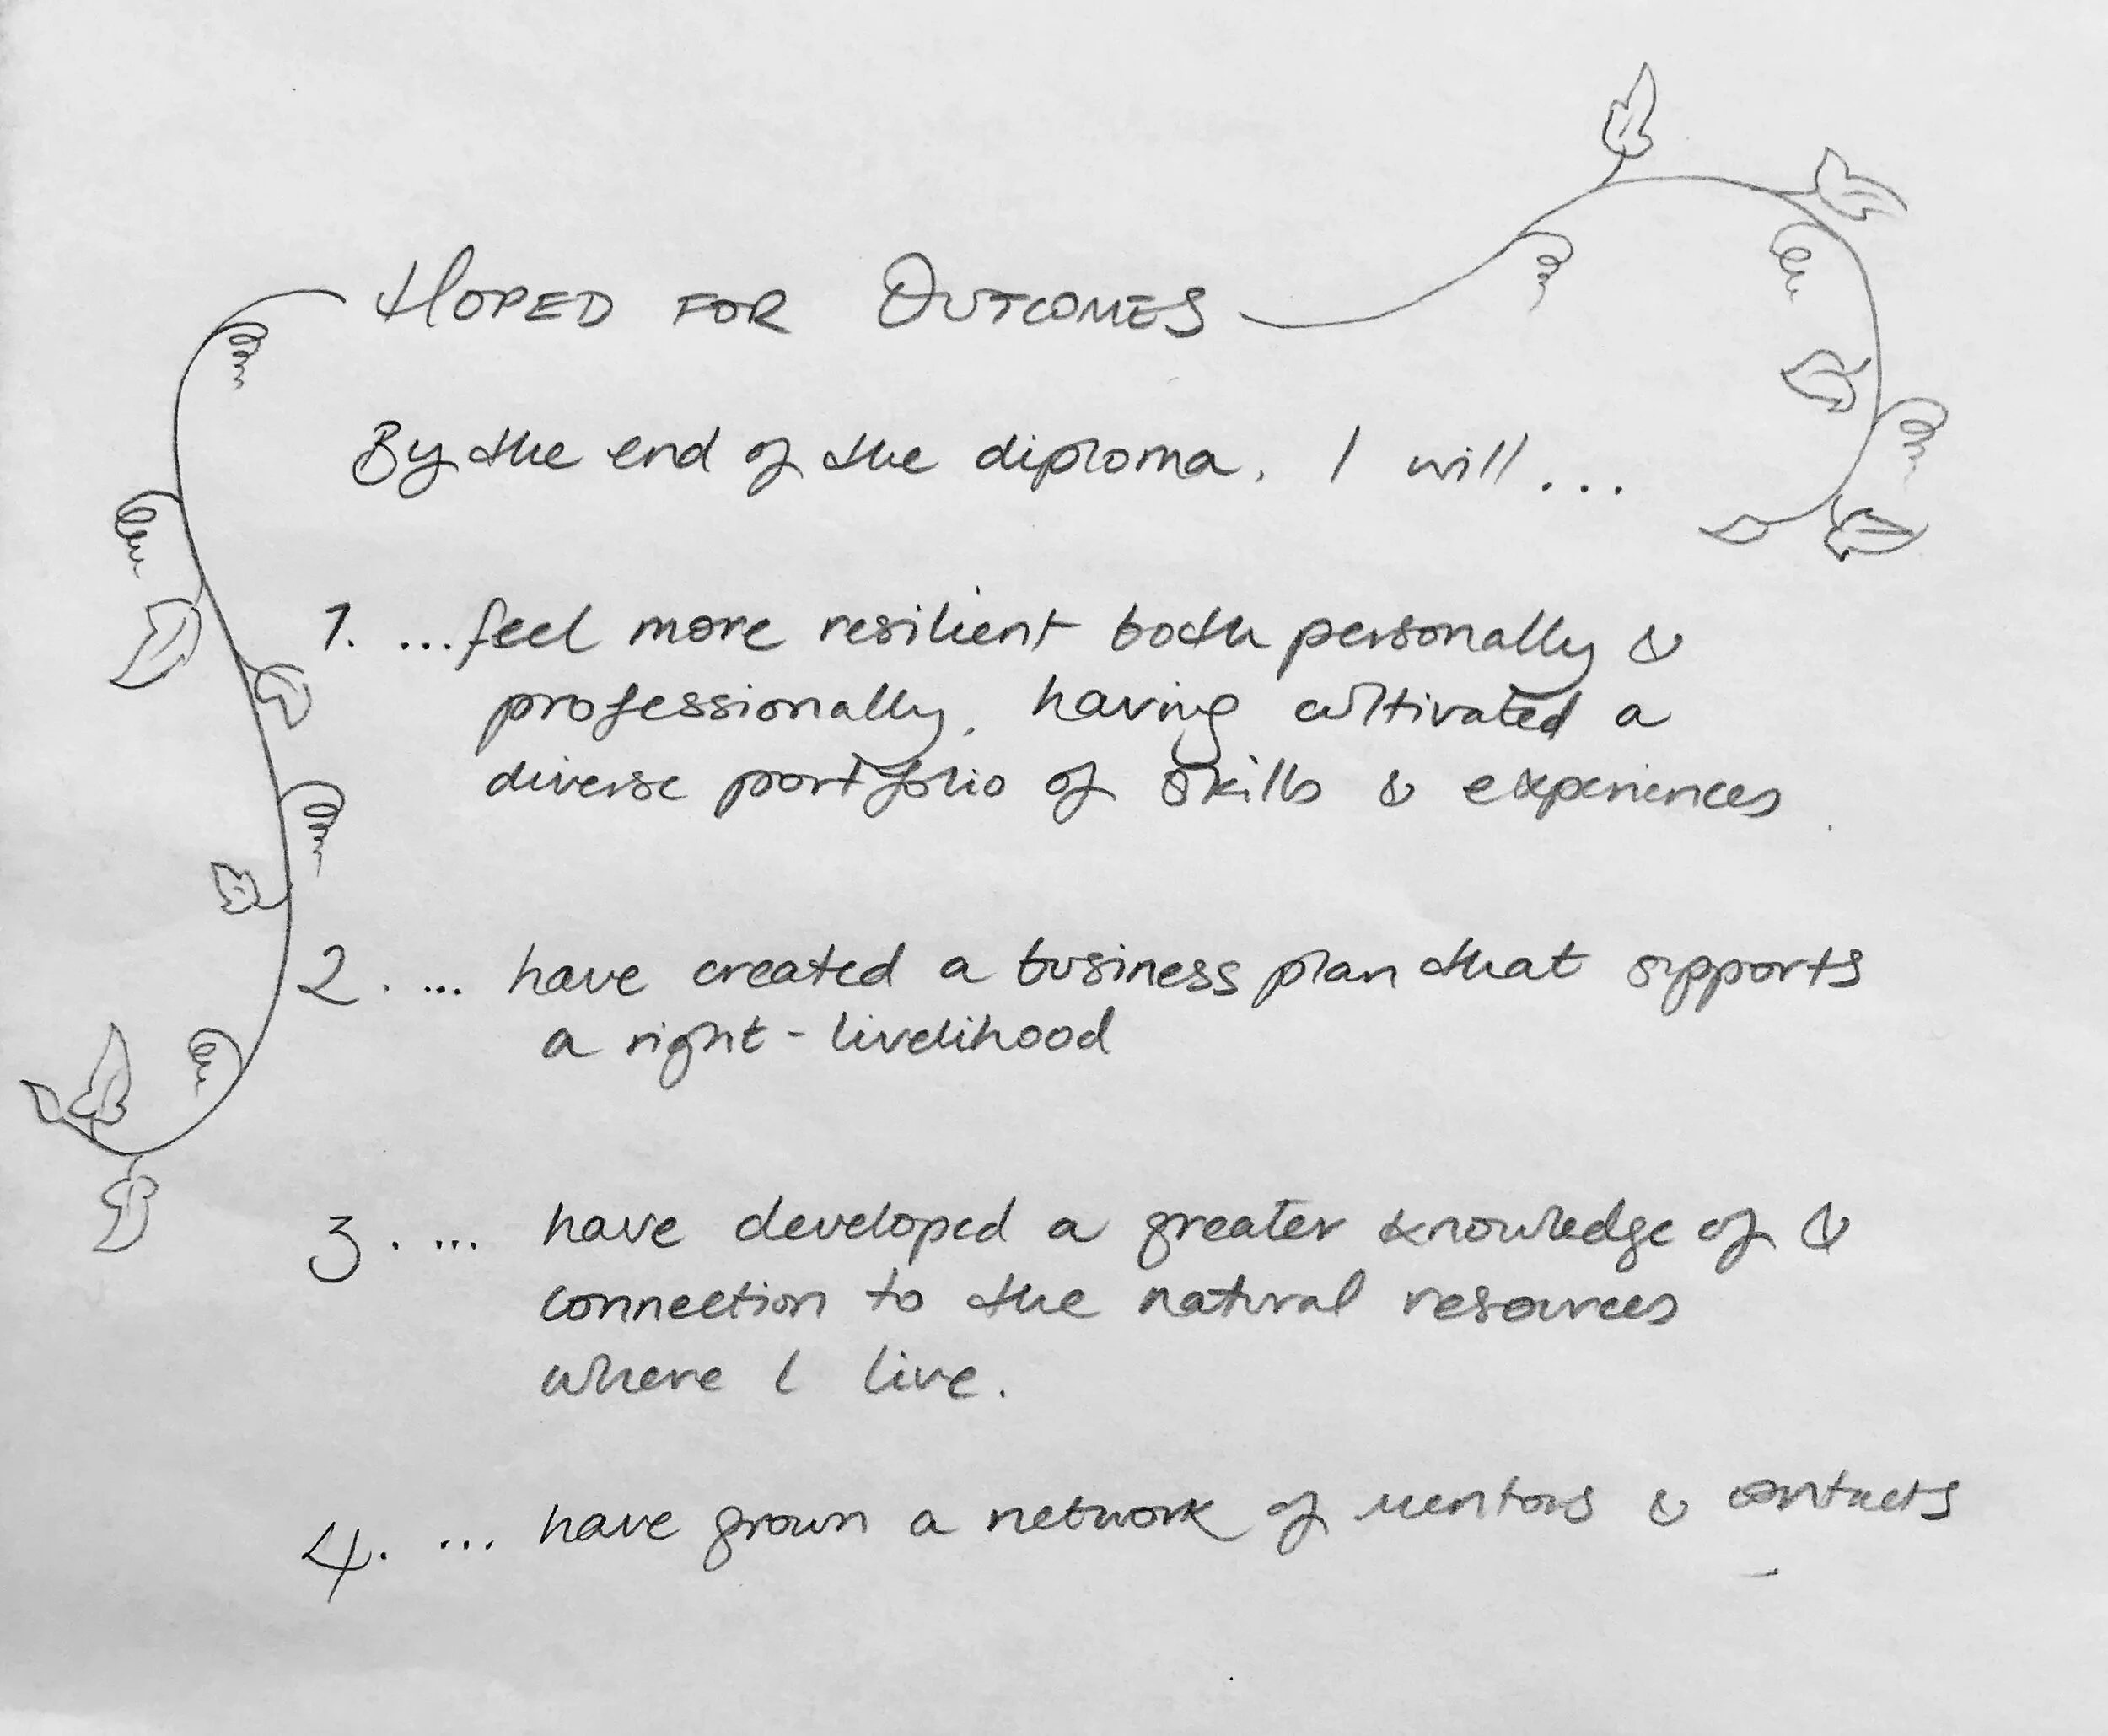 HOPED FOR OUTCOMES
By the end of the diploma, I will...
1. ...feel more resilient both personally &
professionally, having cultivated a
diverse portfolio of skills & experiences
2. ... have created a business plan that supports
a right-livelihood
3. ... have developed a greater knowledge of &
connection to the natural resources
where I live.
4. ... have grown a network of mentors & contacts